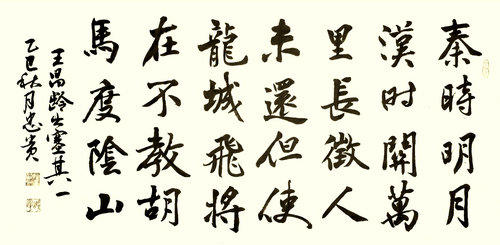 秦時明月
漢时關萬
里長徵人
未還但使
龍城飛將
在不教胡
馬度陰山
王昌龄出塞其一
乙巳秋月忠贵